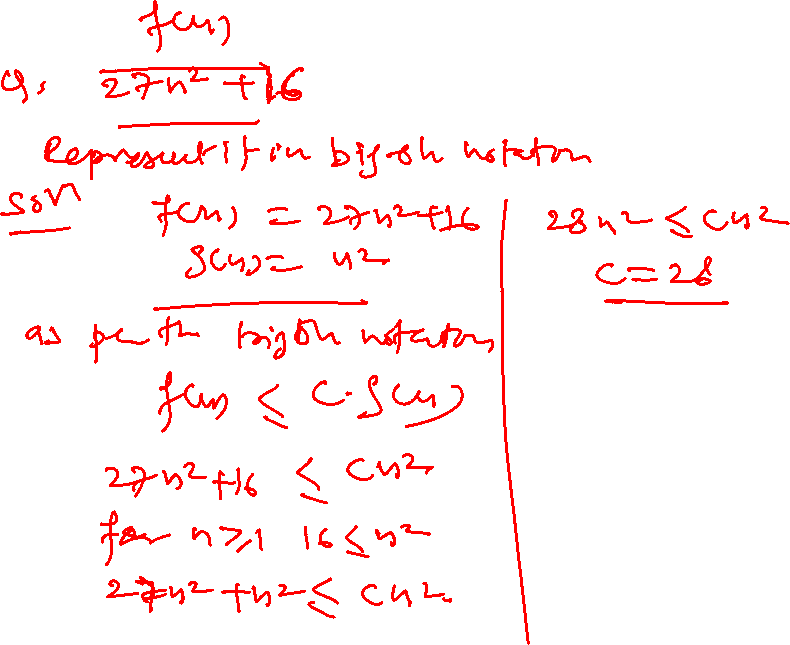 f(n)
Q. 27n² + 16
Represent it in big-oh notation
Soln
f(n) = 27n²+16
g(n) = n²
as per the bigOh notation,
f(n) ≤ C·g(n)
27n²+16 ≤ Cn²
for n≥1 16≤n²
27n² + n² ≤ Cn².
28n² ≤ Cn²
C = 28